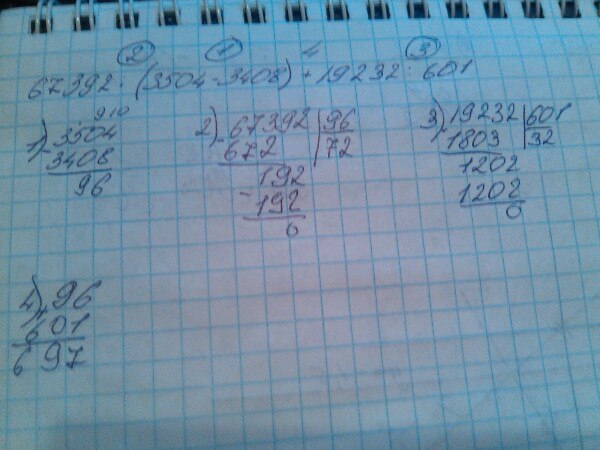 2 1 4 3
67392 : (3504 - 3408) + 19232 : 601
9 10
1) - 3504
3408
96
2) - 67392 | 96
672 | 72
192
- 192
0
3) - 19232 | 601
1803 | 32
1202
1202
0
4) + 96
601
697